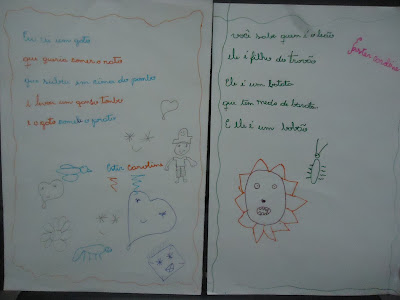 Eu vi um gato
que queria comer o rato
que subiu em cima do pombo
e levou um tombo
e o gato comeu o
Ester Carolina
você sabe quem é o leão
ele é filho do trovão
Ele é um batata
que tem medo de barata
E ele é um bobão
Ester carolina